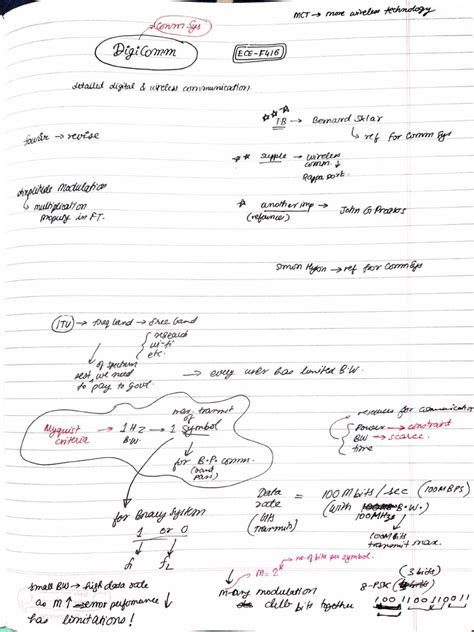 Comm. Sys
MCT → more wireless technology
DigiComm
ECE-F416
detailed digital & wireless communication.
TB → Bernard Sklar
ref for Comm Sys
fourier → revise
supple → wireless comm.
Rappaport.
amplitude Modulation
multiplication
impulse in FT.
another imp → John G Proakis
(reference)
Simon Haykin → ref for Comm Sys
ITU → freq band → free band
research
wi-fi
etc.
of spectrum
rest, we need
to pay to Govt.
→ every user has limited B.W.
Nyquist criteria → 1 Hz → 1 symbol
B.W.
max. transmit
for B.P. comm.
(band pass)
resources for communication
Power → constraint
BW → scarce
time
for Binary System
1 or 0
f₁ f₂
Data rate = 100 Mbits / sec (100 MBPS)
(bits transmit)
(with B.W.)
100 MHz
100 Mbits
transmit max.
Small BW → high data rate
as M ↑ → error performance ↓
has limitations!
M = 2ᵏ → no. of bits per symbol.
M-ary modulation
club bits together
8-PSK (3 bits)
100 110 011